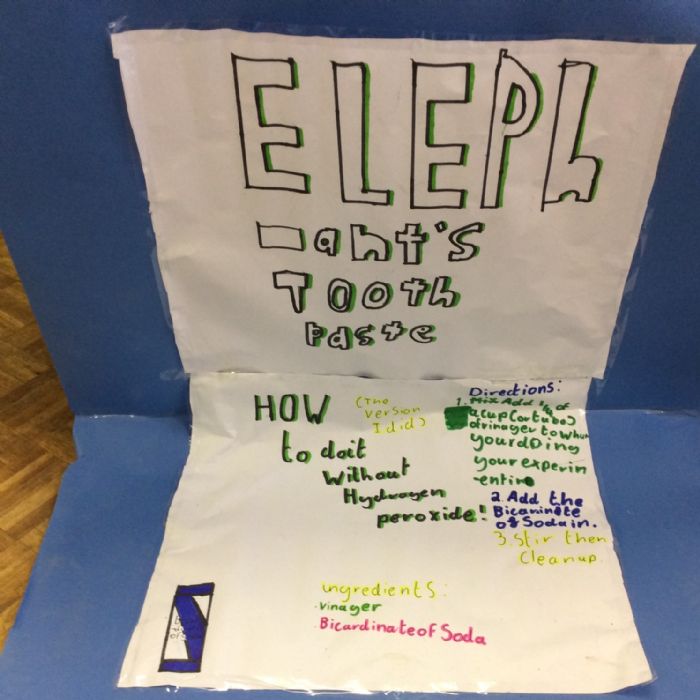 ELEPh
-ant's
Tooth
paste
HOW
to do it
without
Hydrogen
peroxide!
(The
version
I did)
Directions:
1. Mix Add 1/4 of
a cup (or tube)
of vinager to
your doing
your experim
-ent in
2. Add the
Bicarninate
of Soda in.
3. Stir then
Clean up.
ingredients:
·Vinager
·Bicardinate of Soda